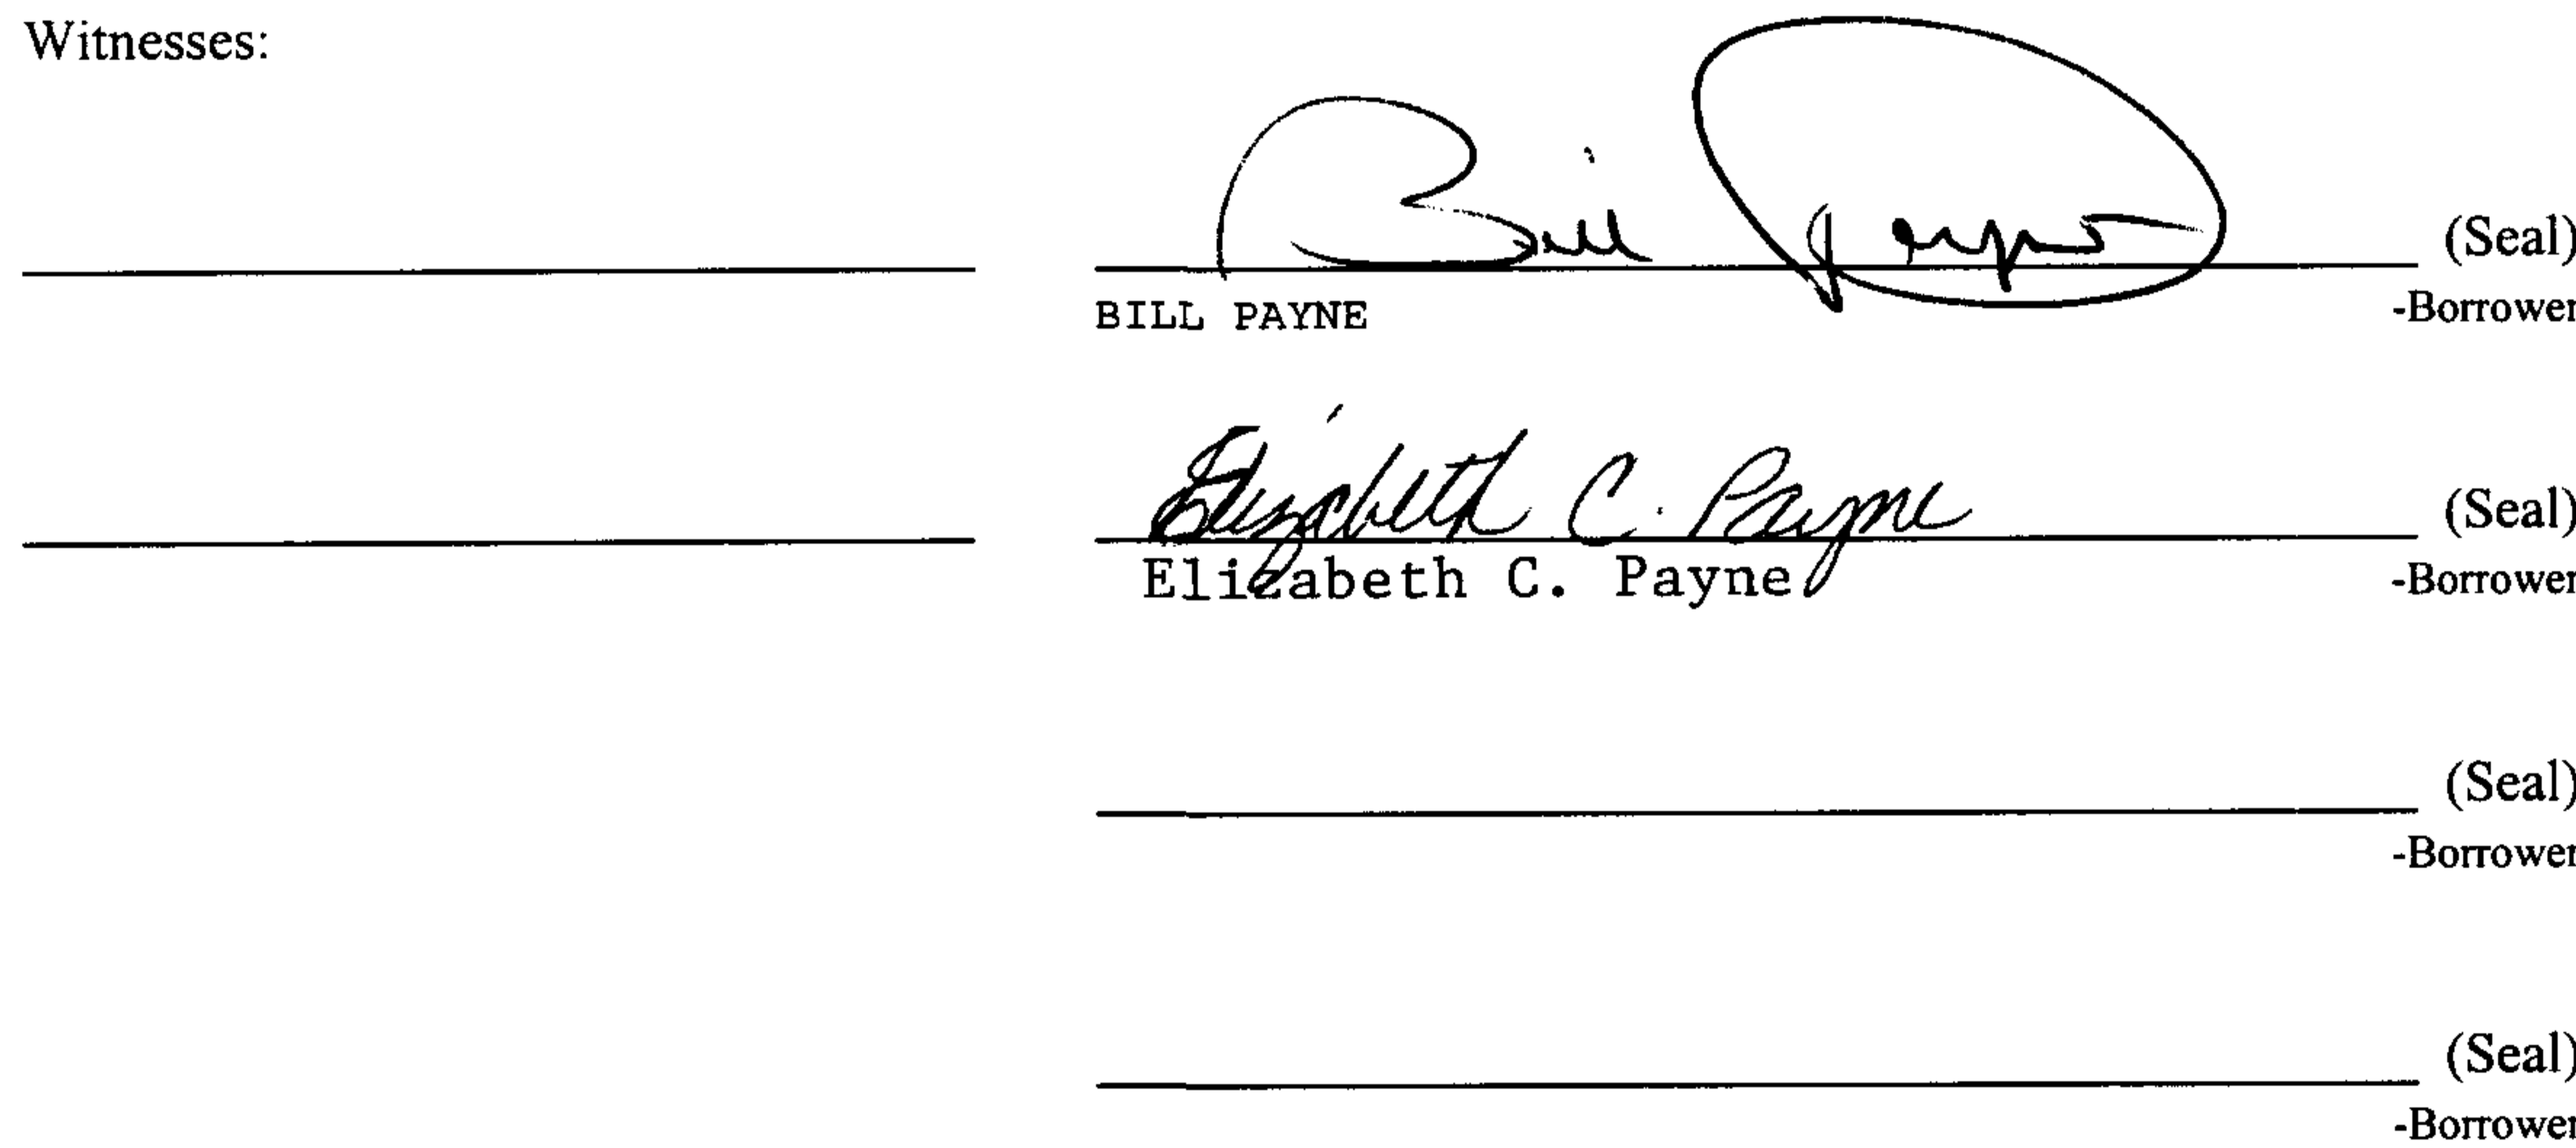 Witnesses:
Bill Payne (Seal)
BILL PAYNE -Borrower
Elizabeth C. Payne (Seal)
Elizabeth C. Payne -Borrower
(Seal)
-Borrower
(Seal)
-Borrower